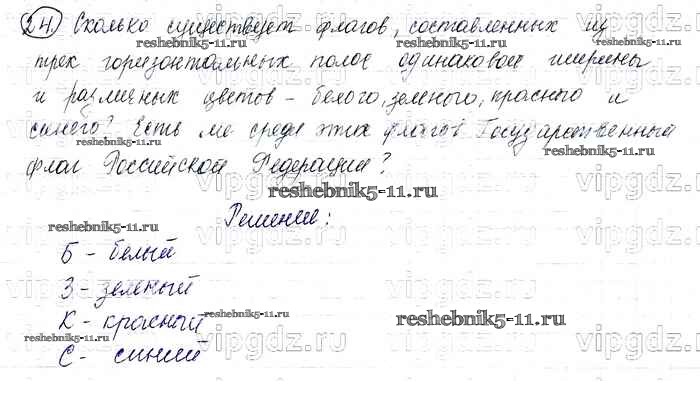 24. Сколько существует флагов, составленных из
reshebnik5-11.ru
трех горизонтальных полос одинаковой ширины
reshebnik5-11.ru
и различных цветов - белого, зеленого, красного и
синего? Есть ли среди этих флагов Государственный
reshebnik5-11.ru
флаг Российской Федерации?
reshebnik5-11.ru
vipgdz.ru
Решение:
reshebnik5-11.ru
Б - белый
vipgdz.ru
З - зеленый
К - красный
reshebnik5-11.ru
reshebnik5-11.ru
С - синий
vipgdz.ru